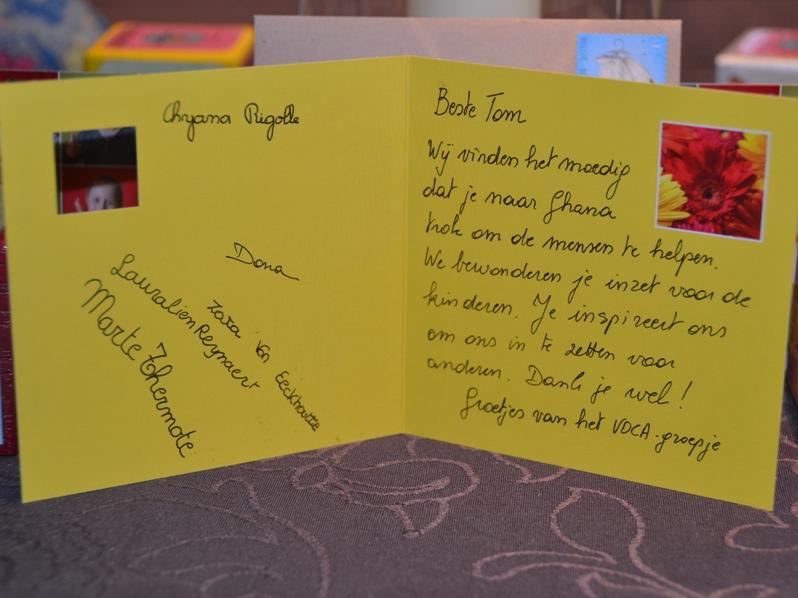 Chyana Rigolle
Dona
Zara Van Eeckhoutte
Lauralien Reynaert
Marte Thermote
Beste Tom
Wij vinden het moedig
dat je naar Ghana
trok om de mensen te helpen.
We bewonderen je inzet voor de
kinderen. Je inspireert ons
om ons in te zetten voor
anderen. Dank je wel!
Groetjes van het VOCA-groepje